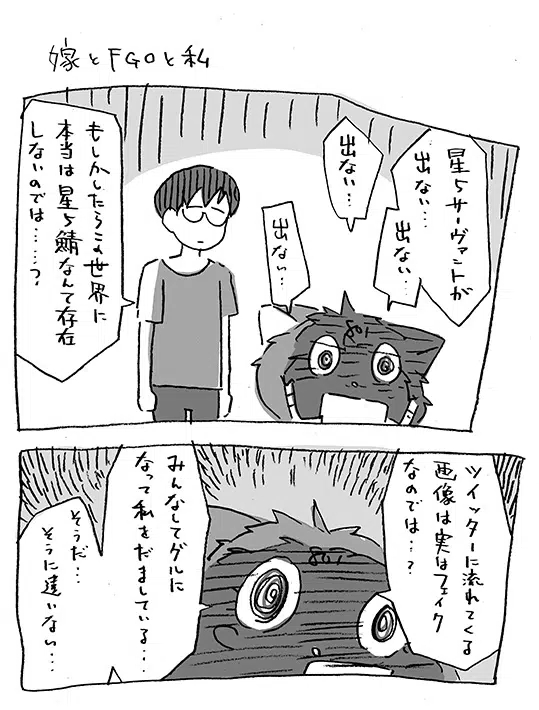 嫁とFGOと私
星5サーヴァントが
出ない…
出ない…
出ない…
出ない…
もしかしたらこの世界に
本当は星5鯖なんて存在
しないのでは……?
801
ツイッターに流れてくる
画像は実はフェイク
なのでは…?
みんなしてグルに
なって私をだましている…
そうだ…
そうに違いない…
801